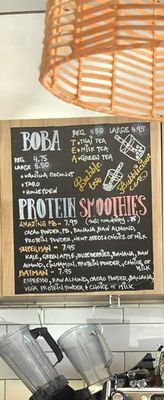 BOBA
REG 4.50 LARGE 4.95
T • THAI TEA
E • MILK TEA
A • GREEN TEA
REG 4.75
LARGE 5.50
• VANILLA COCONUT
• TARO
• HONEYDEW
PROTEIN SMOOTHIES
AMAZING PB - 7.95
CACAO POWDER, PB, BANANA, RAW ALMOND,
PROTEIN POWDER, HEMP SEEDS & CHOICE OF MILK
GREEN GUY - 7.95
KALE, GREEN APPLE, BLUEBERRIES, BANANA, RAW
ALMOND, CINNAMON, PROTEIN & CHOICE OF MILK
BATMAN - 7.95
ESPRESSO, RAW ALMOND, CACAO POWDER, BANANA
VEGA PROTEIN POWDER & CHOICE OF MILK